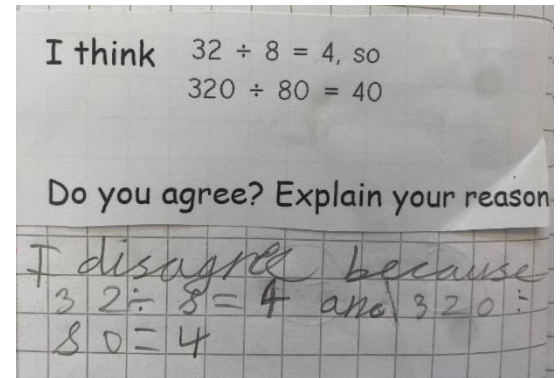 I think 32 ÷ 8 = 4, so
320 ÷ 80 = 40
Do you agree? Explain your reason
I disagree because
32÷ 8=4 and 320÷
80=4